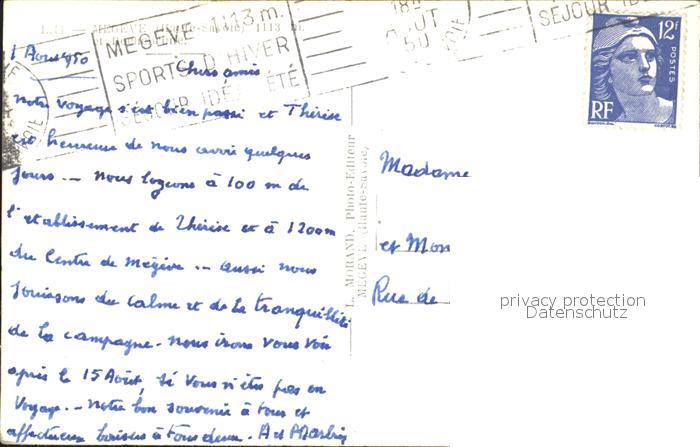 L. MORAND, Photo-Editeur
MEGÈVE (Haute-Savoie)
MEGEVE 1113 m.
SPORTS D'HIVER
SEJOUR IDÉAL ÉTÉ
18
AOUT
50
SEJOUR IDÉ
12F
POSTES
RF
1 Aout 950
Chers amis
Notre voyage s'est bien passé et Thérèse
est heureuse de nous avoir quelques
jours .— Nous logeons à 100 m de
l'établissement de Thérèse et à 1200m
du Centre de Mégève .— aussi nous
jouissons du calme et de la tranquillité
de la campagne - Nous irons vous voir
après le 15 Août, si vous n'êtes pas en
voyage .— Notre bon souvenir à tous et
affectueux baisers à tous deux -
Madame
et Mon
Rue de
privacy protection
Datenschutz